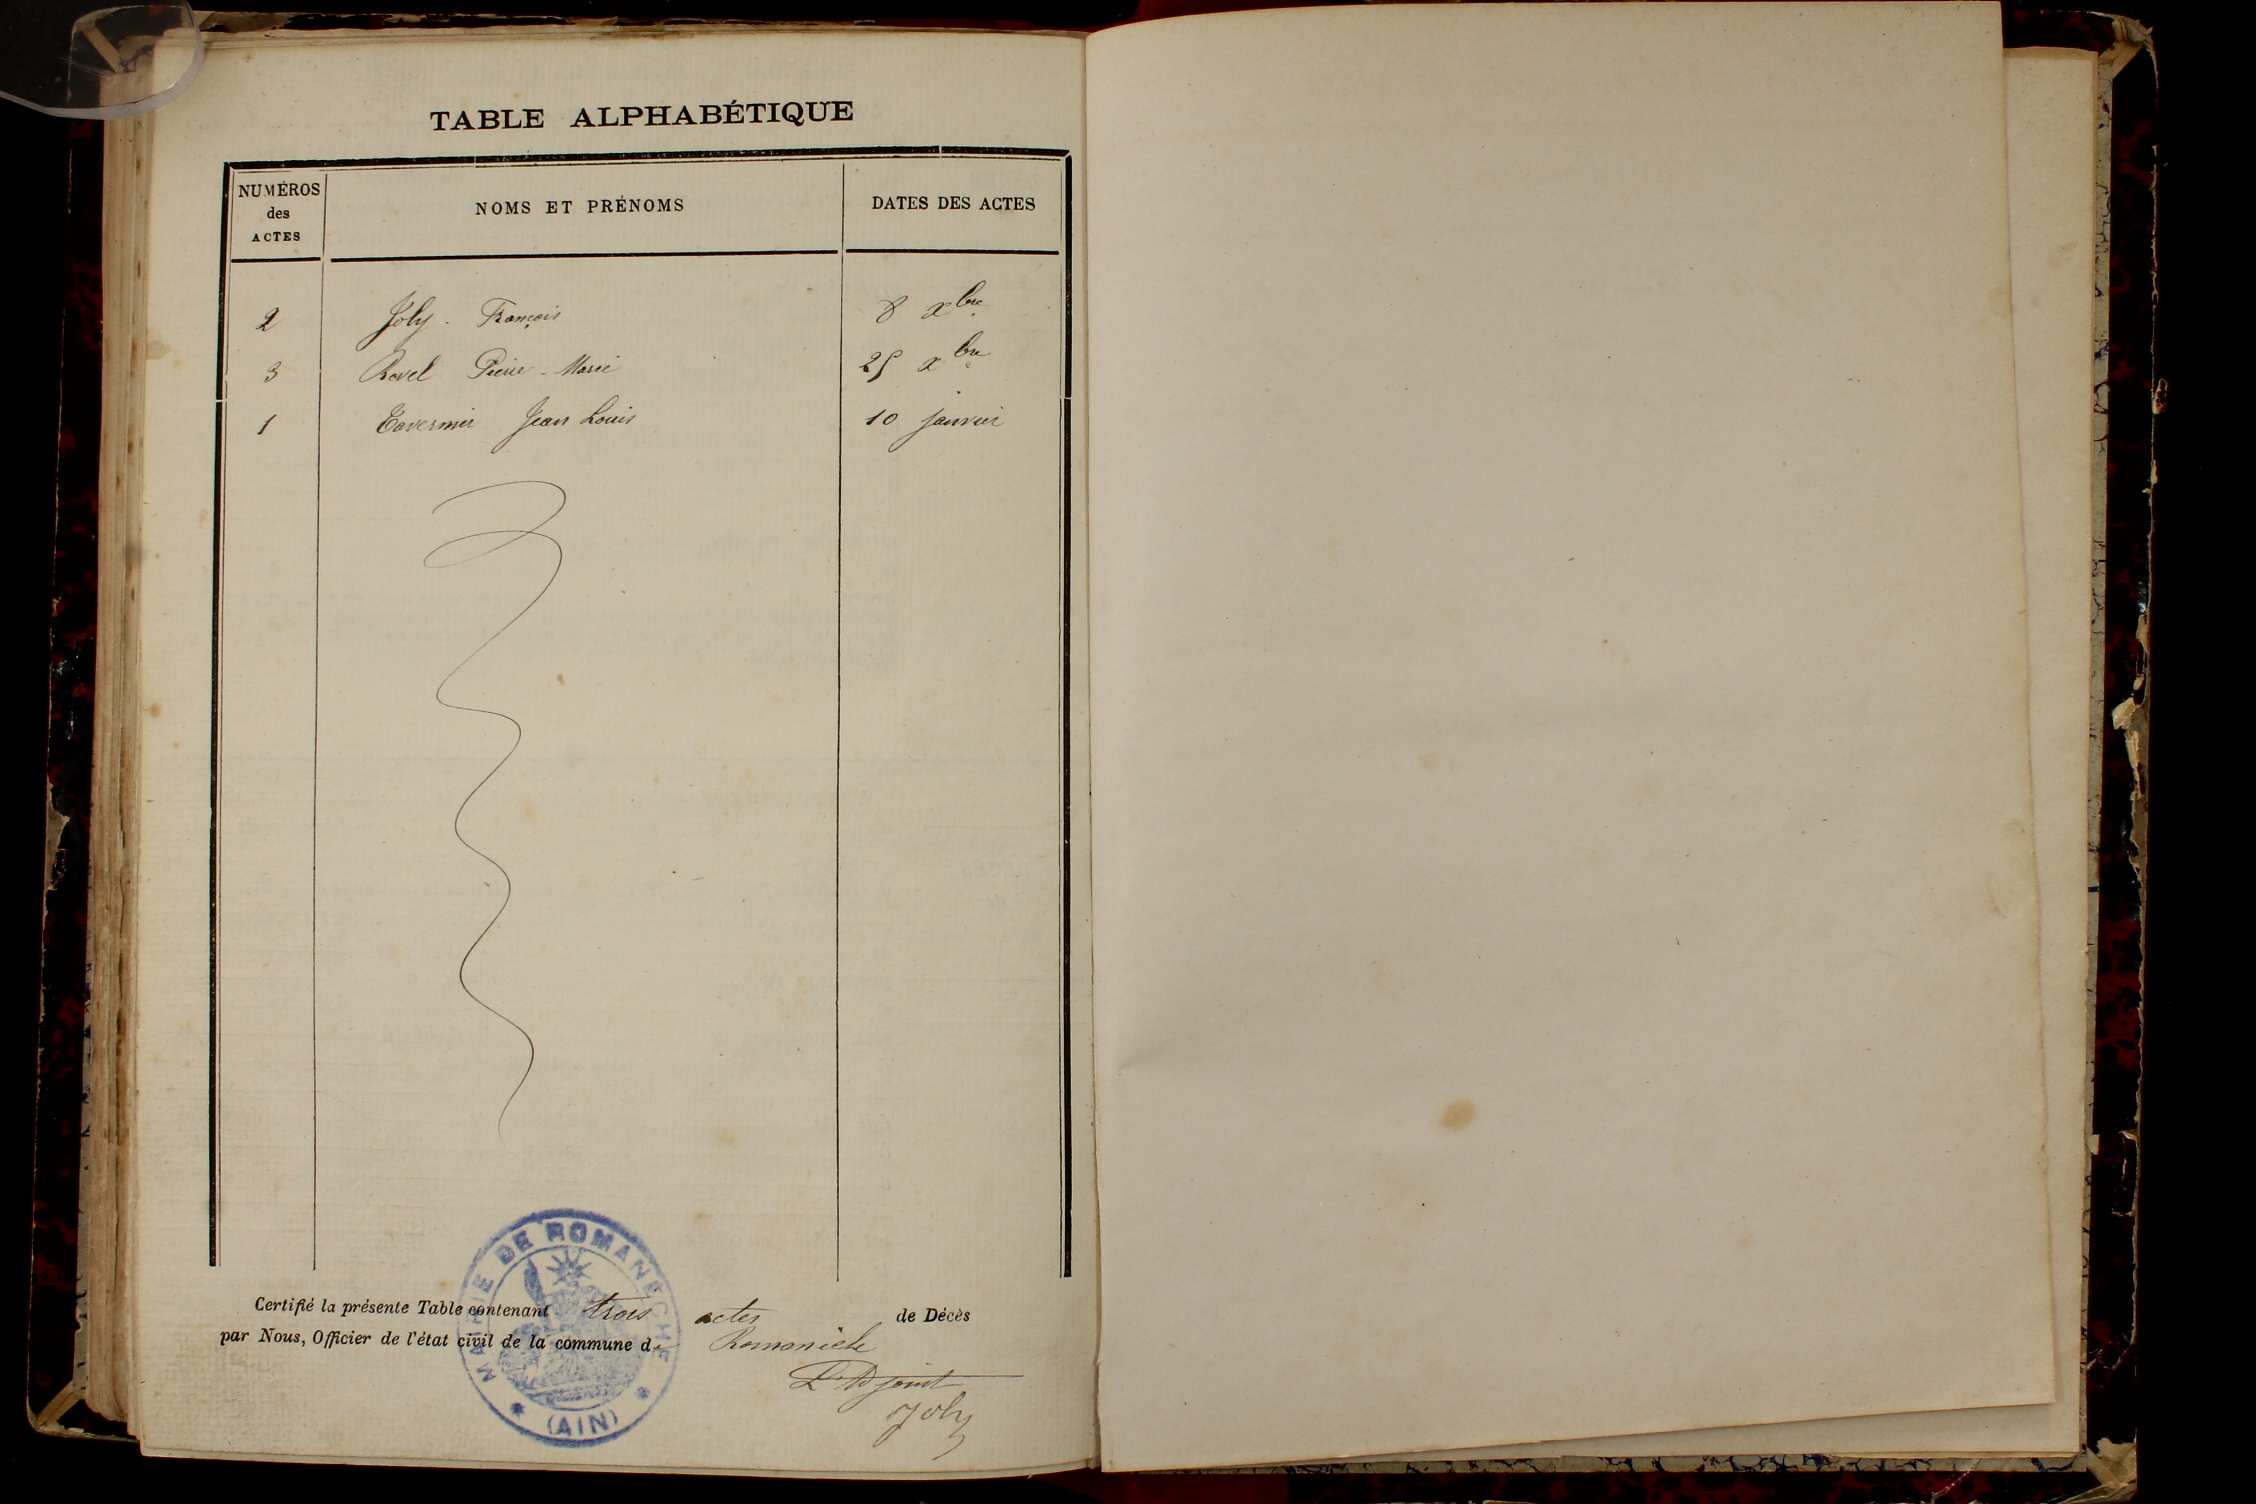 TABLE ALPHABÉTIQUE
NUMÉROS des ACTES NOMS ET PRÉNOMS DATES DES ACTES
2 Joly François 8 xbre
3 Revel Pierre-Marie 25 xbre
1 Tavernier Jean Louis 10 janvier
MAIRIE DE ROMANÈCHE
(AIN)
Certifié la présente Table contenant trois actes de Décès
par Nous, Officier de l'état civil de la commune de Romanèche
L'Adjoint
Joly